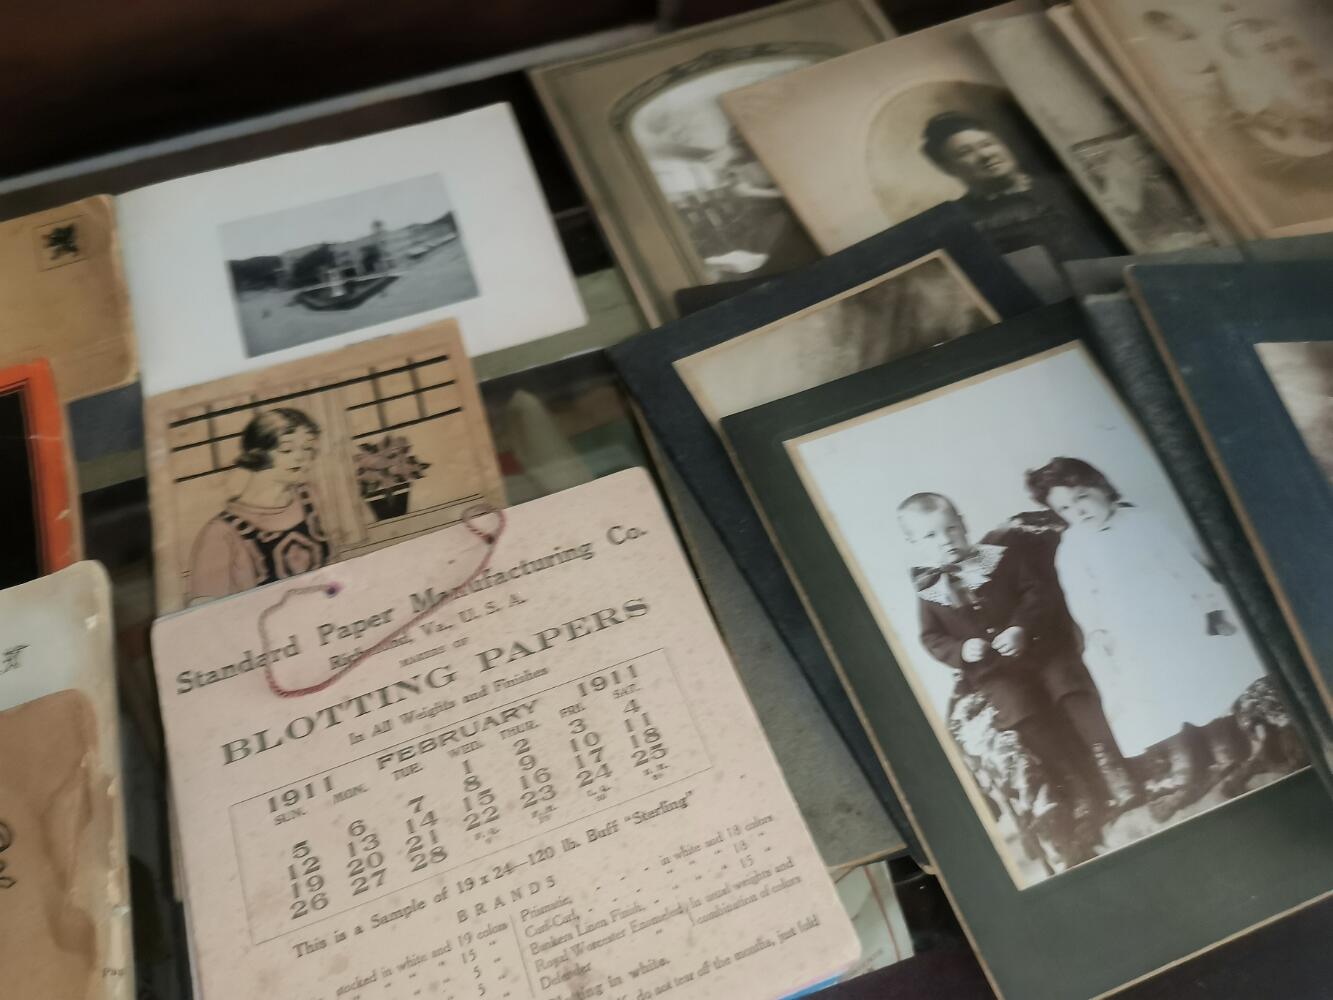 Standard Paper Manufacturing Co.
Richmond, Va., U. S. A.
MAKERS OF
BLOTTING PAPERS
In All Weights and Finishes
1911 FEBRUARY 1911
SUN. MON. TUE. WED. THUR. FRI. SAT.
1 2 3 4
5 6 7 8 9 10 11
12 13 14 15 16 17 18
19 20 21 22 23 24 25
26 27 28
This is a Sample of 19 x 24—120 lb. Buff "Sterling"
BRANDS
stocked in white and 19 colors
" " " 15 "
" " " 5 "
" " 5 "
Prismatic, in white and 18 colors
Curl-Curl, " " " 18 "
Bankers Linen Finish, " " " 15 "
Royal Worcester Enameled, In usual weights and
Defender combination of colors
in white.
do not tear off the months, just fold